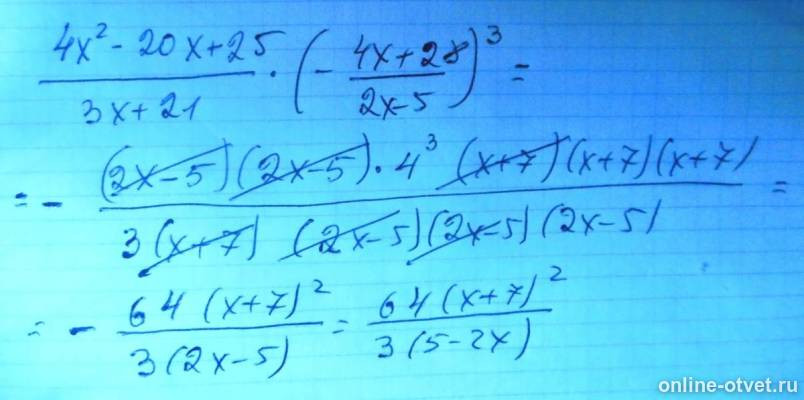 (4x² - 20x + 25)/(3x + 21) · (- (4x + 28)/(2x - 5))³ =
= - ((2x - 5)(2x - 5) · 4³ (x + 7)(x + 7)(x + 7))/(3(x + 7)(2x - 5)(2x - 5)(2x - 5)) =
= - (64(x + 7)²)/(3(2x - 5)) = (64(x + 7)²)/(3(5 - 2x))
online-otvet.ru